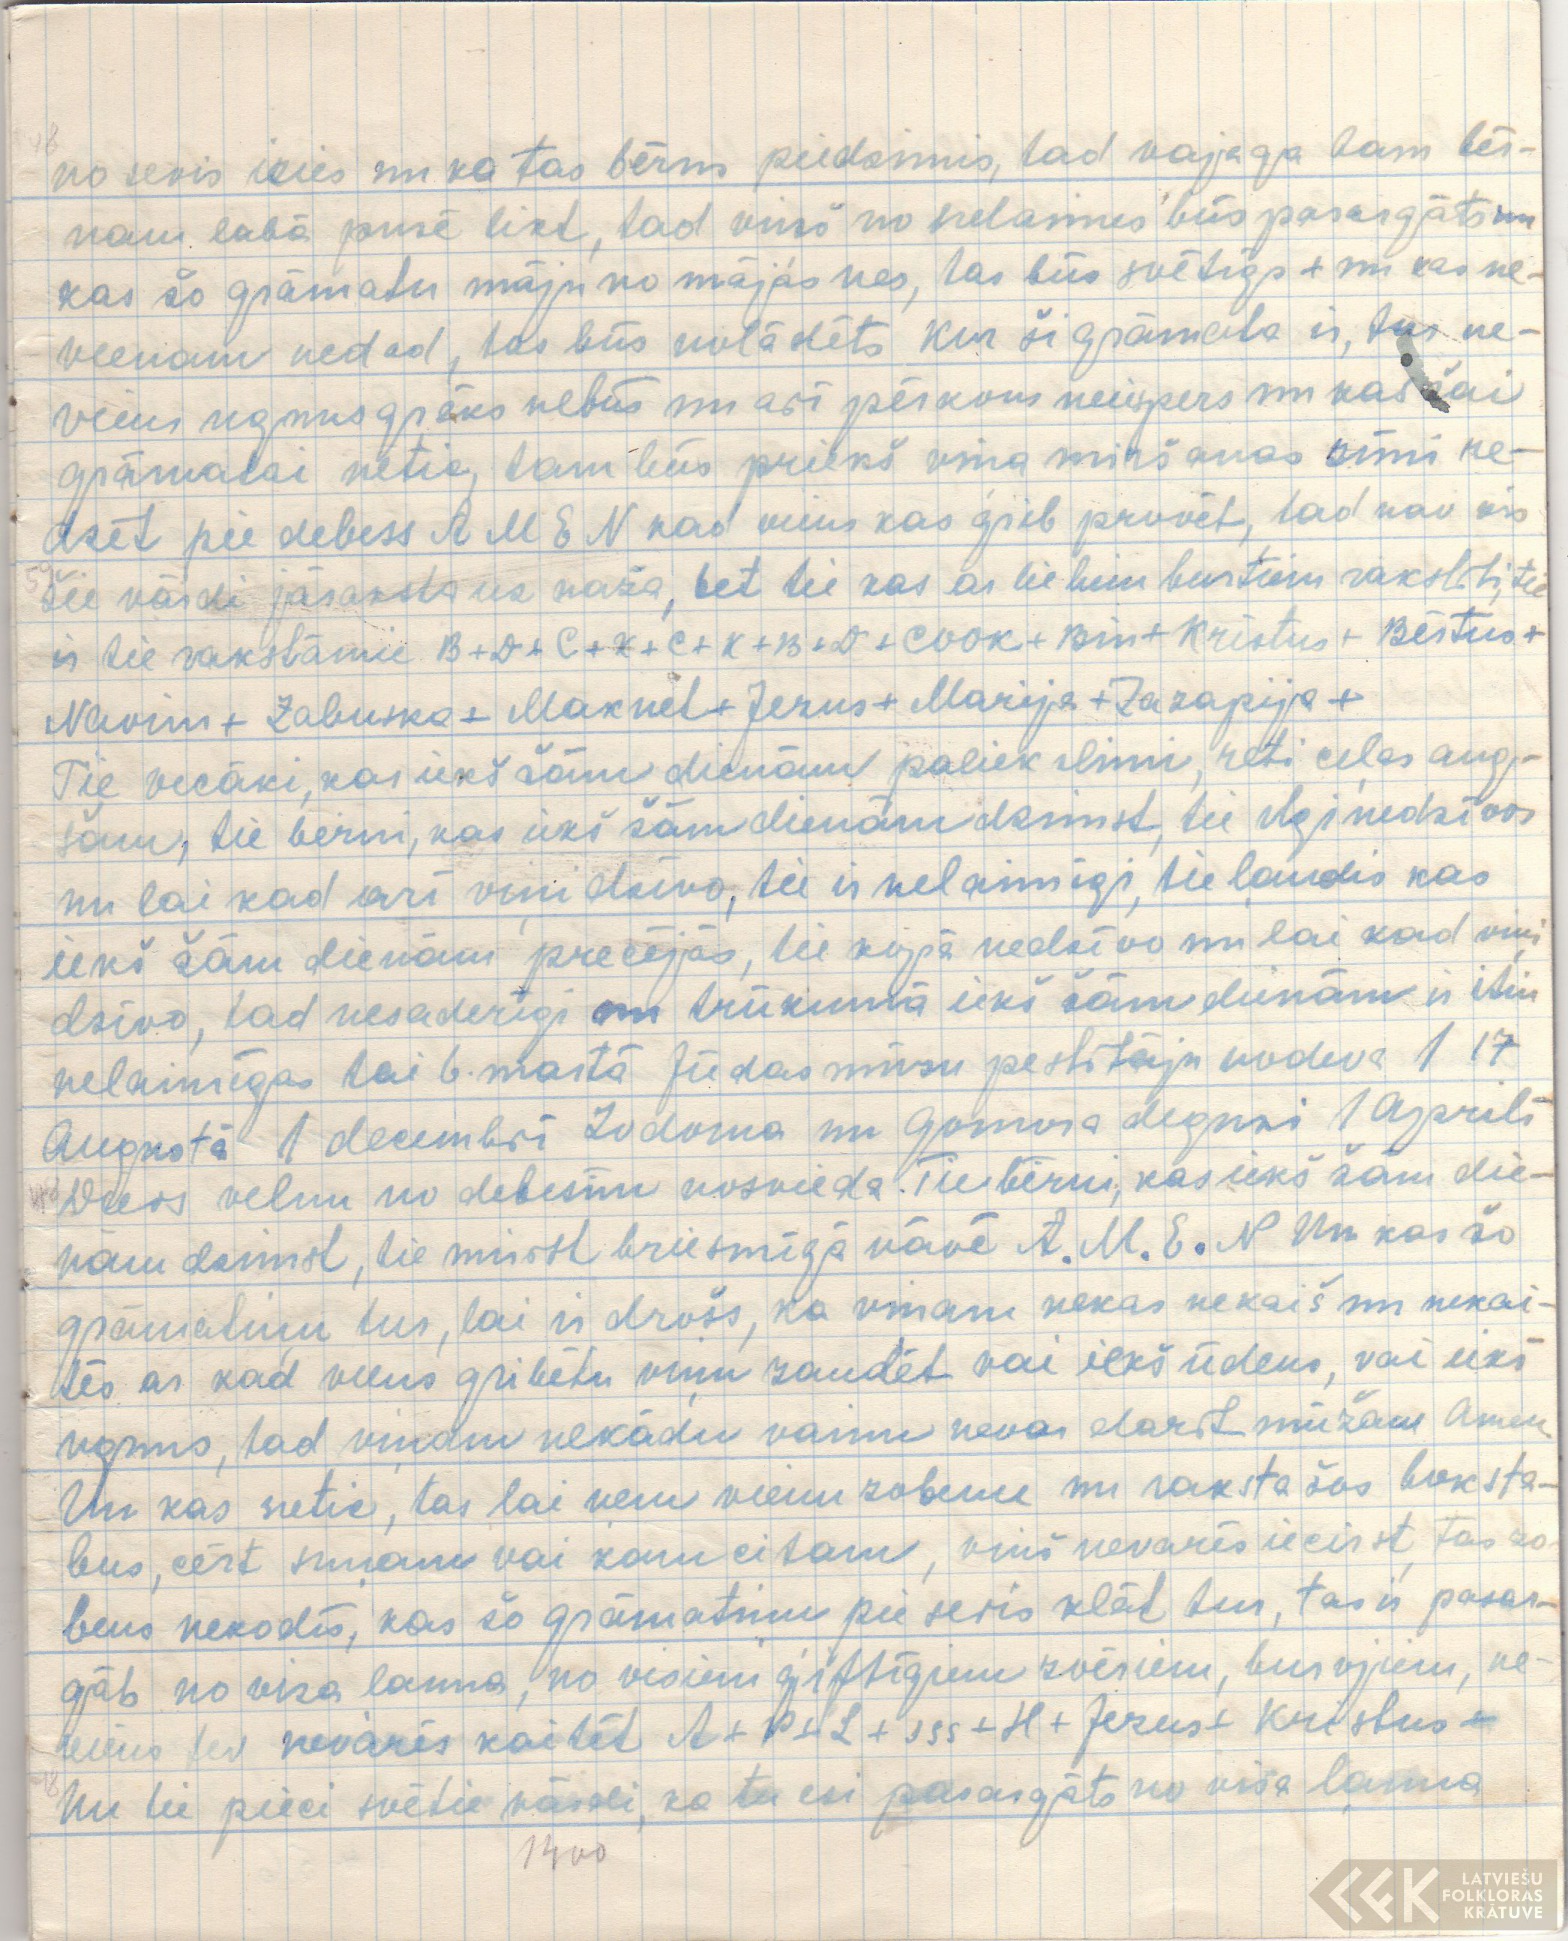 no sevis izies un ka tas bērns piedzimis, tad vajaga tam bēr-
nam labā pusē likt, tad viņš no nelaimes būs pasargāts un
kas šo grāmatu māju no mājas nes, tas būs svētīgs + un kas ne-
vienam nedod, tas būs nolādēts Kur šī grāmata ir, tur ne-
viens ugunsgrēks nebūs un arī pērkons neiespers un kas šai
grāmatai netic, tam būs priekš viņa miršanas zīmi re-
dzēt pie debess A M E N kad viens kas grib provēt, tad nav vis
šie vārdi jāraksta uz naža, bet tie kas ar lieliem burtiem rakstīti, tie
ir tie rakstāmie B+D+C+K+C+K+B+D+COOK+Bin+Kristus+Bērtus+
Navim+Zabuska+Maknet+Jezus+Marija+Zazapija+
Tie vecāki, kas iekš šām dienām paliek slimi, reti ceļas aug-
šām, tie bērni, kas iekš šām dienām dzimst, tie ilgi nedzīvos
un lai kad arī viņi dzīvo, tie ir nelaimīgi, tie ļaudis kas
iekš šām dienām precējās, tie kopā nedzīvo un lai kad viņi
dzīvo, tad nesaderīgi un trūkumā iekš šām dienām ir itin
nelaimīgas tai 6. martā Jūdas mūsu pestītāju nodeva 1 17
Augustā 1 decembrī Zodoma un Gomora deguši 1 Aprīlī
Dievs velnu no debesīm nosvieda. Tie bērni, kas iekš šām die-
nām dzimst, tie mirst briesmīgā nāvē A. M. E. N Un kas šo
grāmatiņu tur, lai ir drošs, ka viņam nekas nekaiš un nekai-
tēs ar kad viens gribētu viņu zaudēt vai iekš ūdens, vai iekš
uguns, tad viņam nekādu vainu nevar darīt mūžam Amen
Un kas netic, tas lai ņem vienu zobenu un raksta šos boksta-
bus, cērt sunam vai kam citam, viņš nevarēs iecirst, tas zo-
bens nekodīs, kas šo grāmatiņu pie sevis klāt tur, tas ir pasar-
gāts no visa ļauna, no visiem ģiftīgiem zvēriem, burvjiem, ne-
viens tev nevarēs kaitēt A+P+L+sss+H+Jezus+Kristus+
Un tie pieci svētie vārdi, ka tu esi pasargāts no visa ļauna
1400
LATVIEŠU
FOLKLORAS
KRĀTUVE